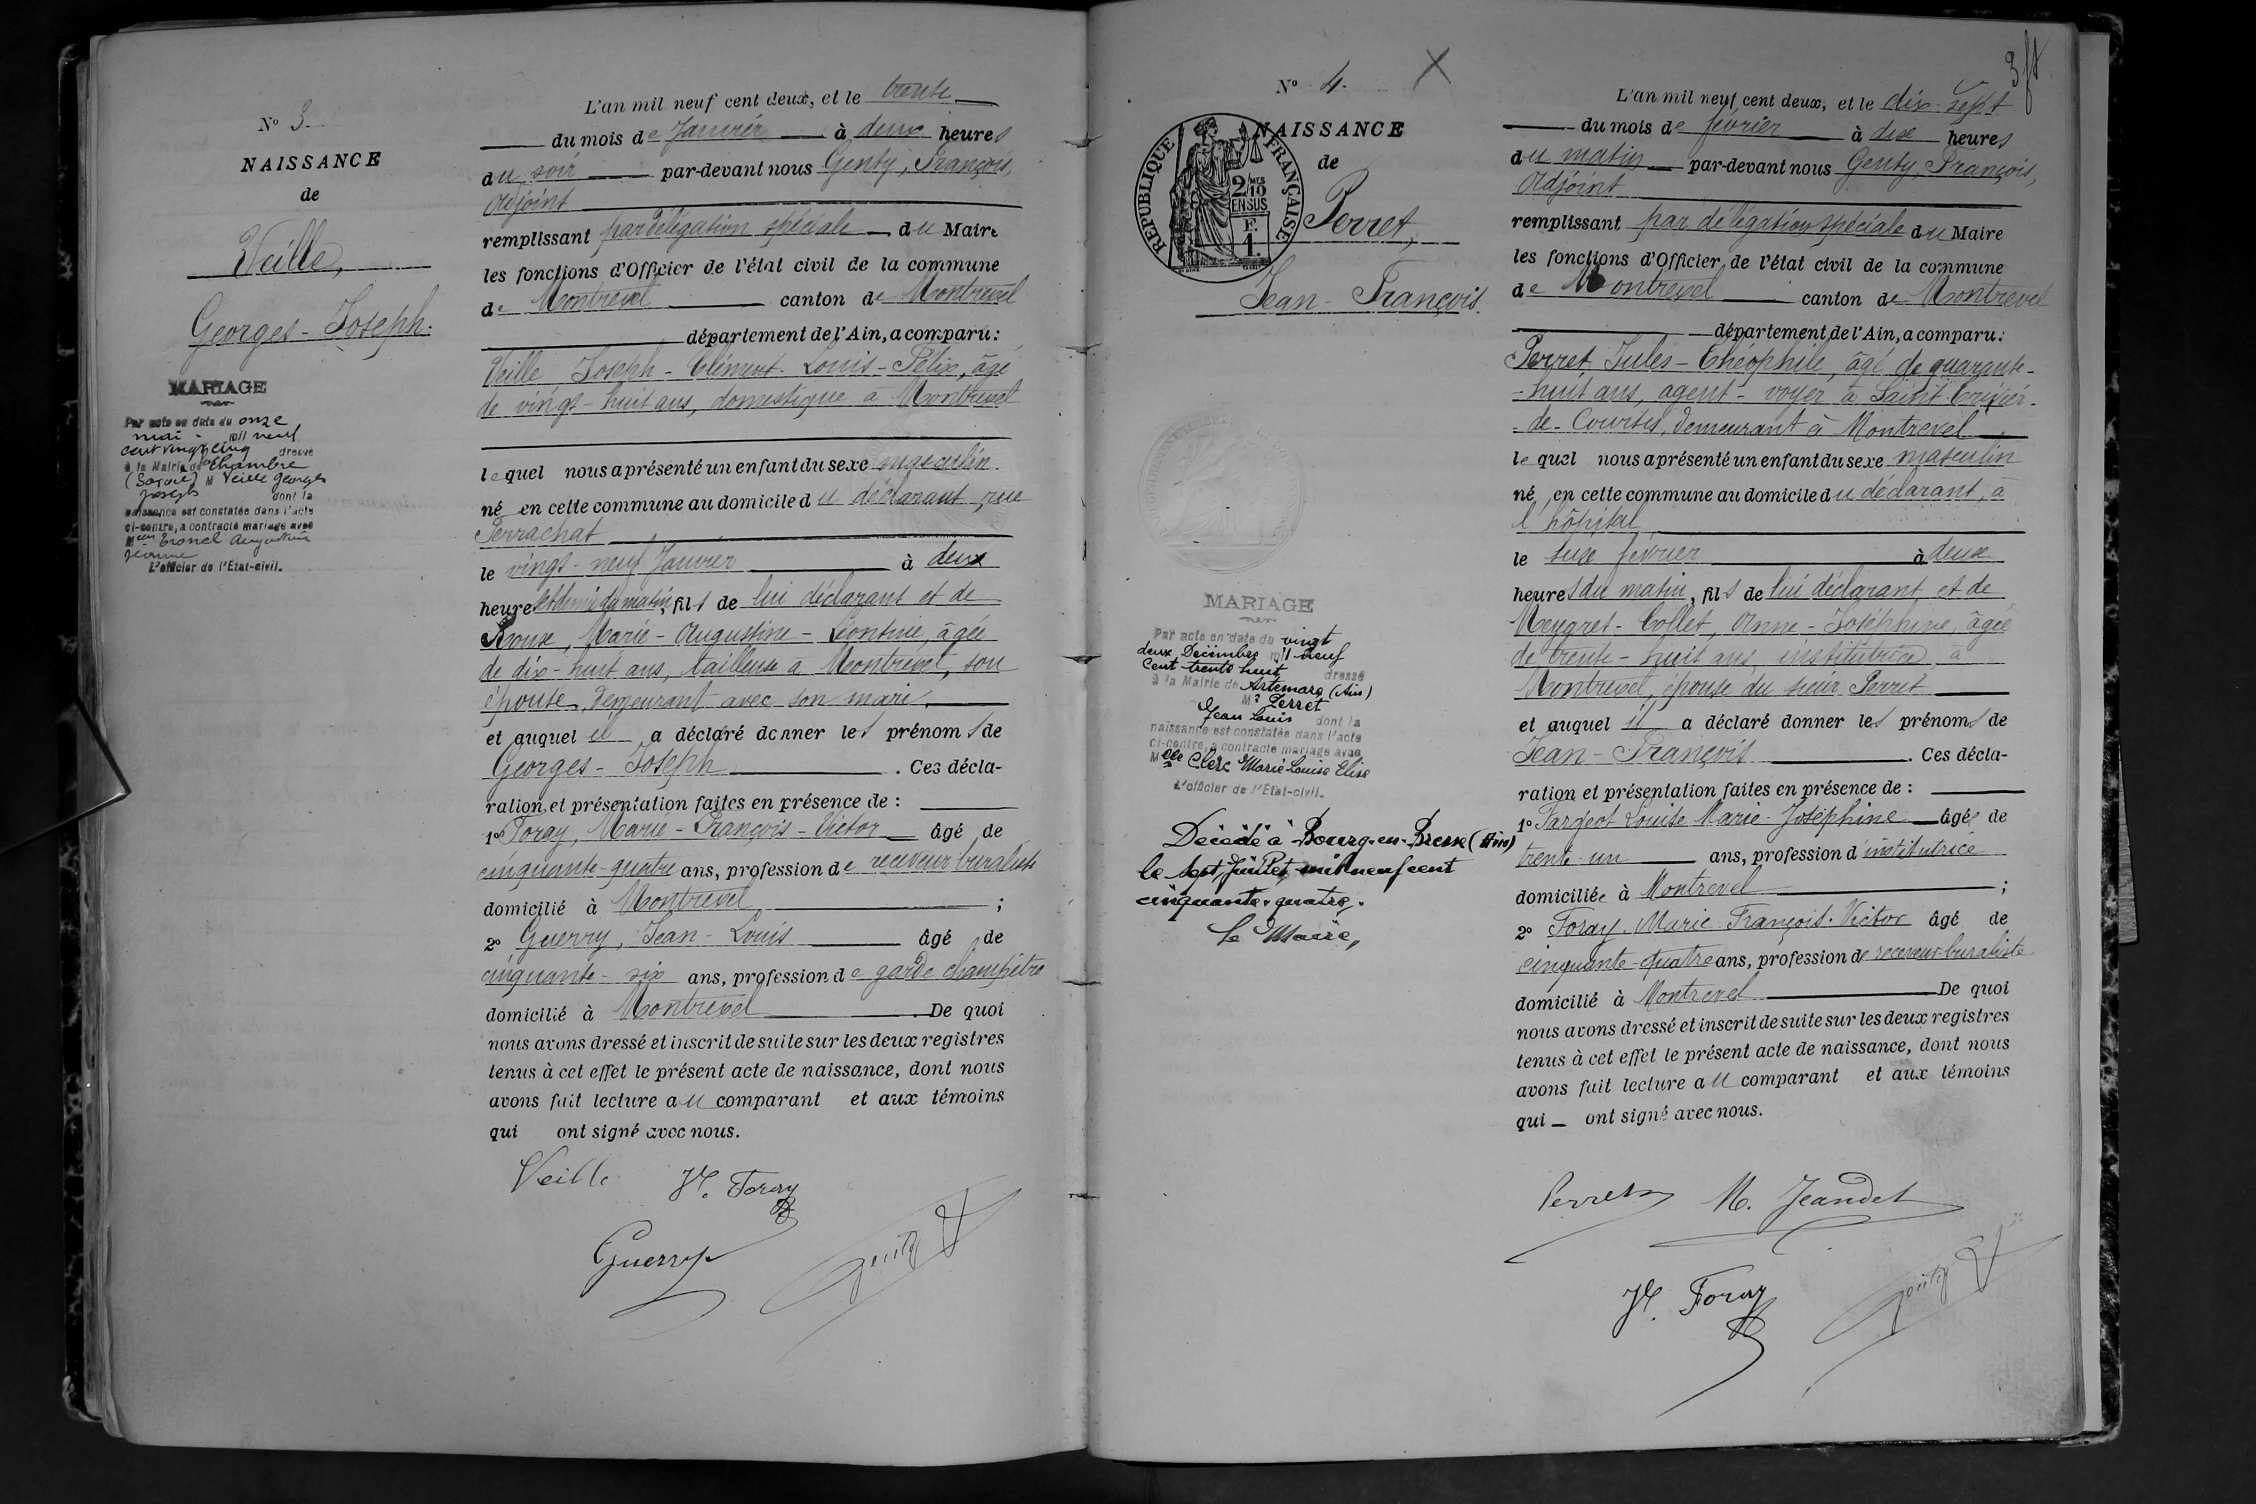 N° 3.
NAISSANCE
de
Veille,
Georges-Joseph.
MARIAGE
Par acte en date du onze
mai - mil neuf
cent vingt cinq dressé
à la Mairie de Chambre
(Savoie) M Veille Georges
Joseph dont la
naissance est constatée dans l'acte
ci-contre, a contracté mariage avec
Melle Augustine
Jeanne
L'officier de l'État-civil.
L'an mil neuf cent deux, et le trente
du mois de Janvier à deux heures
du soir par-devant nous Genty, François,
Adjoint
remplissant par délégation spéciale du Maire
les fonctions d'Officier de l'état civil de la commune
de Montrevel canton de Montrevel
département de l'Ain, a comparu:
Veille Joseph-Clément-Louis-Félix, âgé
de vingt-huit ans, domestique à Montrevel
lequel nous a présenté un enfant du sexe masculin
né en cette commune au domicile du déclarant, rue
Perrachat
le vingt-neuf Janvier à deux
heures et demie du matin, fils de lui déclarant et de
Marie-Augustine-Léontine, âgée
de dix-huit ans, tailleuse à Montrevel, son
épouse, demeurant avec son mari,
et auquel il a déclaré donner les prénoms de
Georges-Joseph. Ces décla-
ration et présentation faites en présence de :
1° Foray, Marie-François-Victor âgé de
cinquante-quatre ans, profession de receveur buraliste
domicilié à Montrevel ;
2° Guerry, Jean-Louis âgé de
cinquante-six ans, profession de garde champêtre
domicilié à Montrevel. De quoi
nous avons dressé et inscrit de suite sur les deux registres
tenus à cet effet le présent acte de naissance, dont nous
avons fait lecture au comparant et aux témoins
qui ont signé avec nous.
Veille V. Foray
Guerry Genty
3
N° 4.
NAISSANCE
RÉPUBLIQUE FRANÇAISE
2/10 MES
EN SUS
F.
1.
de
Perret,
Jean-François.
MARIAGE
Par acte en date du vingt
deux Décembre mil neuf
cent trente huit dressé
à la Mairie de Artemare (Ain)
Mr Perret
Jean Louis dont la
naissance est constatée dans l'acte
ci-contre, a contracté mariage avec
Melle Clerc Marie Louise Elise
L'officier de l'État-civil.
Décédé à Bourg-en-Bresse (Ain)
le sept Juillet mil neuf cent
cinquante-quatre.
Le Maire,
L'an mil neuf cent deux, et le dix-sept
du mois de février à dix heures
du matin par-devant nous Genty François,
Adjoint
remplissant par délégation spéciale du Maire
les fonctions d'Officier de l'état civil de la commune
de Montrevel canton de Montrevel
département de l'Ain, a comparu:
Perret Jules-Théophile, âgé de quarante-
-huit ans, agent-voyer à Saint Trivier-
-de-Courtes, demeurant à Montrevel
lequel nous a présenté un enfant du sexe masculin
né, en cette commune au domicile du déclarant, à
l'hôpital
le seize février à deux
heures du matin, fils de lui déclarant et de
Meygret-Collet, Anne-Joséphine, âgée
de trente-huit ans, institutrice, à
Montrevel, épouse du sieur Perret
et auquel il a déclaré donner les prénoms de
Jean-François. Ces décla-
ration et présentation faites en présence de :
1° Louise Marie-Joséphine âgée de
trente-un ans, profession d'institutrice
domiciliée à Montrevel ;
2° Foray, Marie François-Victor âgé de
cinquante-quatre ans, profession de receveur-buraliste
domicilié à Montrevel De quoi
nous avons dressé et inscrit de suite sur les deux registres
tenus à cet effet le présent acte de naissance, dont nous
avons fait lecture au comparant et aux témoins
qui ont signé avec nous.
Perret M. Jeandet
V. Foray Genty